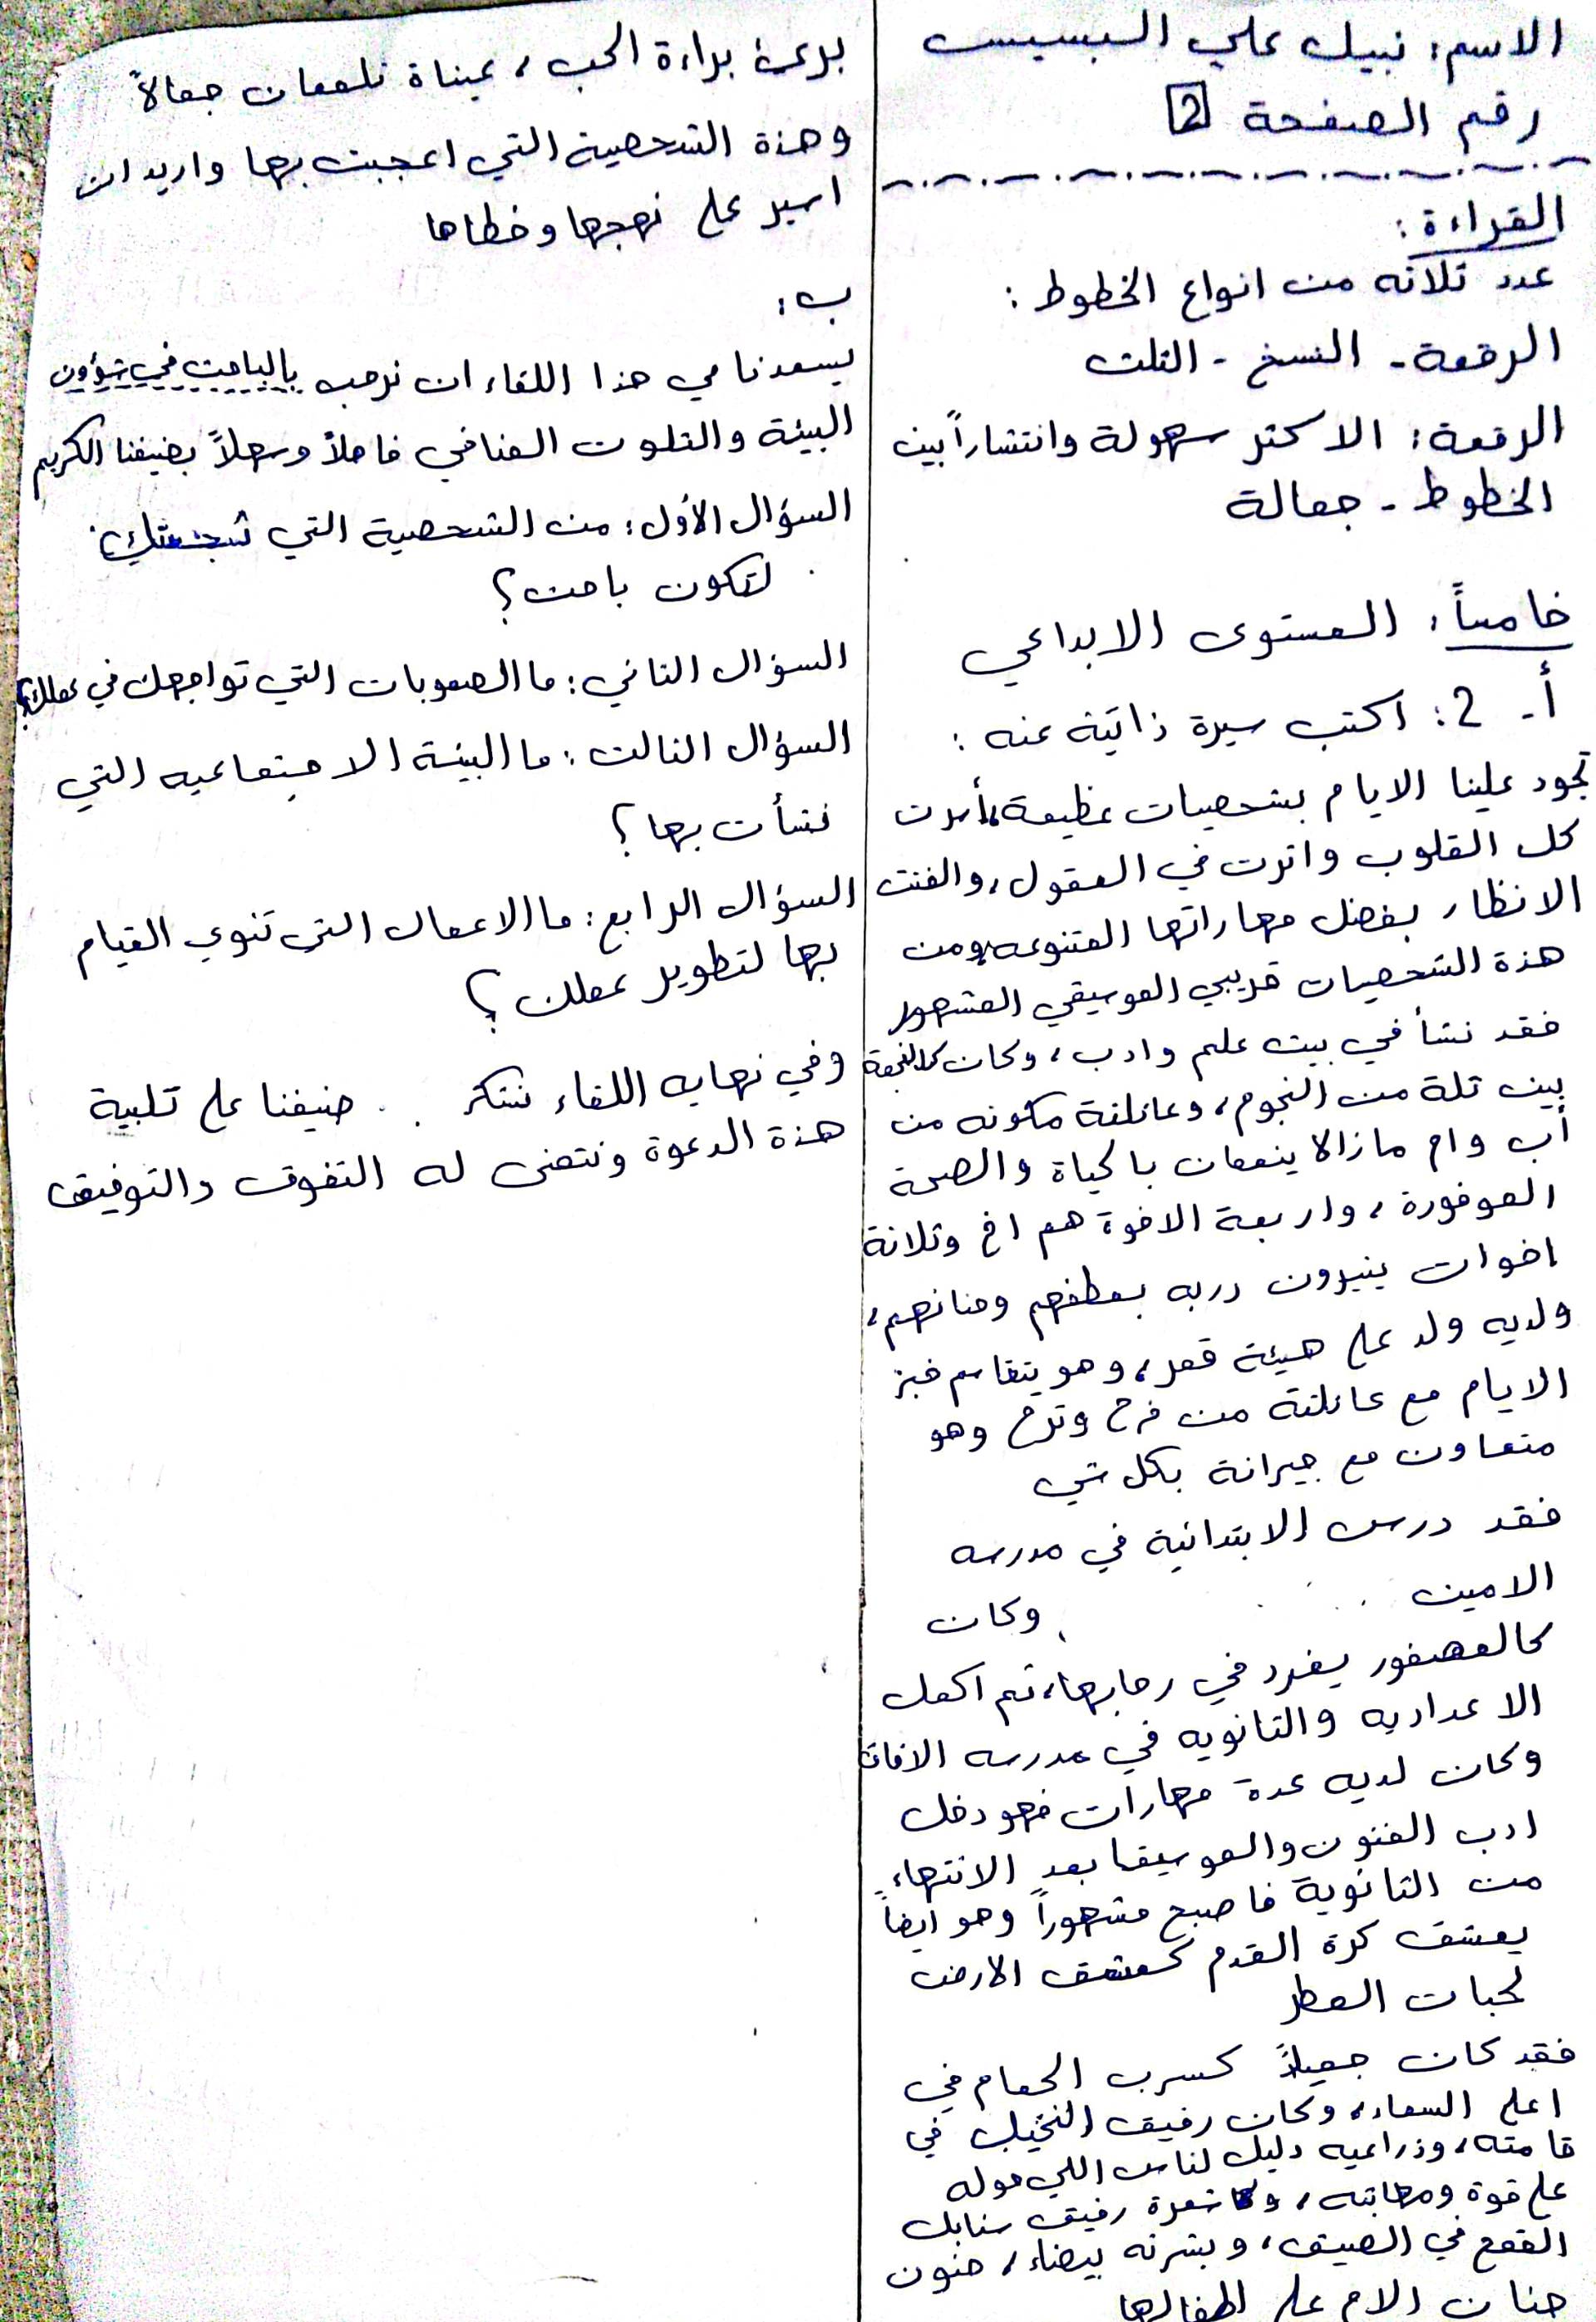 الاسم: نبيل علي البسيس
رقم الصفحة 2
القراءة:
عدد ثلاثه من انواع الخطوط:
الرقعة - النسخ - الثلث
الرقعة: الاكثر سهولة وانتشاراً بين
الخطوط - جمالة
خامساً: المستوى الابداعي
أ- 2: اكتب سيرة ذاتية عنه:
تجود علينا الايام بشخصيات عظيمة، أسرت
كل القلوب واثرت في العقول، والفتت
الانظار بفضل مهاراتها المتنوعه، ومن
هذة الشخصيات قريبي الموسيقي المشهور
فقد نشأ في بيت علم وادب، وكان كالنجمة
بين ثلة من النجوم، وعائلتة مكونه من
أب وام مازالا ينعمان بالحياة والصحة
الموفورة، واربعة الاخوة هم اخ وثلاثة
اخوات ينيرون دربه بعطفهم وحنانهم،
ولديه ولد على هيئة قمر، وهو يتقاسم خبز
الايام مع عائلتة من فرح وترح وهو
متعاون مع جيرانة بكل شي
فقد درس الابتدائية في مدرسه
الامين وكان
كالعصفور يغرد في رحابها، ثم اكمل
الاعداديه والثانويه في مدرسه الافاق
وكان لديه عدة مهارات فهو دخل
ادب الفنون والموسيقا بعد الانتهاء
من الثانوية فاصبح مشهوراً وهو ايضاً
يعشق كرة القدم كعشق الارض
لحبات المطر
فقد كان جميلاً كسرب الحمام في
اعلى السماء، وكان رفيق النخيل في
قامته، وذراعيه دليل لناس اللي حوله
على قوة ومكانته، وشعرة رفيق سنابل
القمح في الصيف، وبشرته بيضاء، حنون
حنان الام على اطفالها
يرعى براءة الحب، عيناة تلمعان جمالاً
وهذة الشخصية التي اعجبت بها واريد ان
اسير على نهجها وخطاها
ب:
يسعدنا في هذا اللقاء ان نرحب بالباحث في شؤون
البيئة والتلوث المناخي فاهلاً وسهلاً بضيفنا الكريم
السؤال الأول: من الشخصية التي شجعتك
لتكون باحث؟
السؤال الثاني: ما الصعوبات التي تواجهك في عملك؟
السؤال الثالث: ما البيئة الاجتماعيه التي
نشأت بها؟
السؤال الرابع: ما الاعمال التي تنوي القيام
بها لتطوير عملك؟
وفي نهايه اللقاء نشكر ضيفنا على تلبية
هذة الدعوة ونتمنى له التفوق والتوفيق